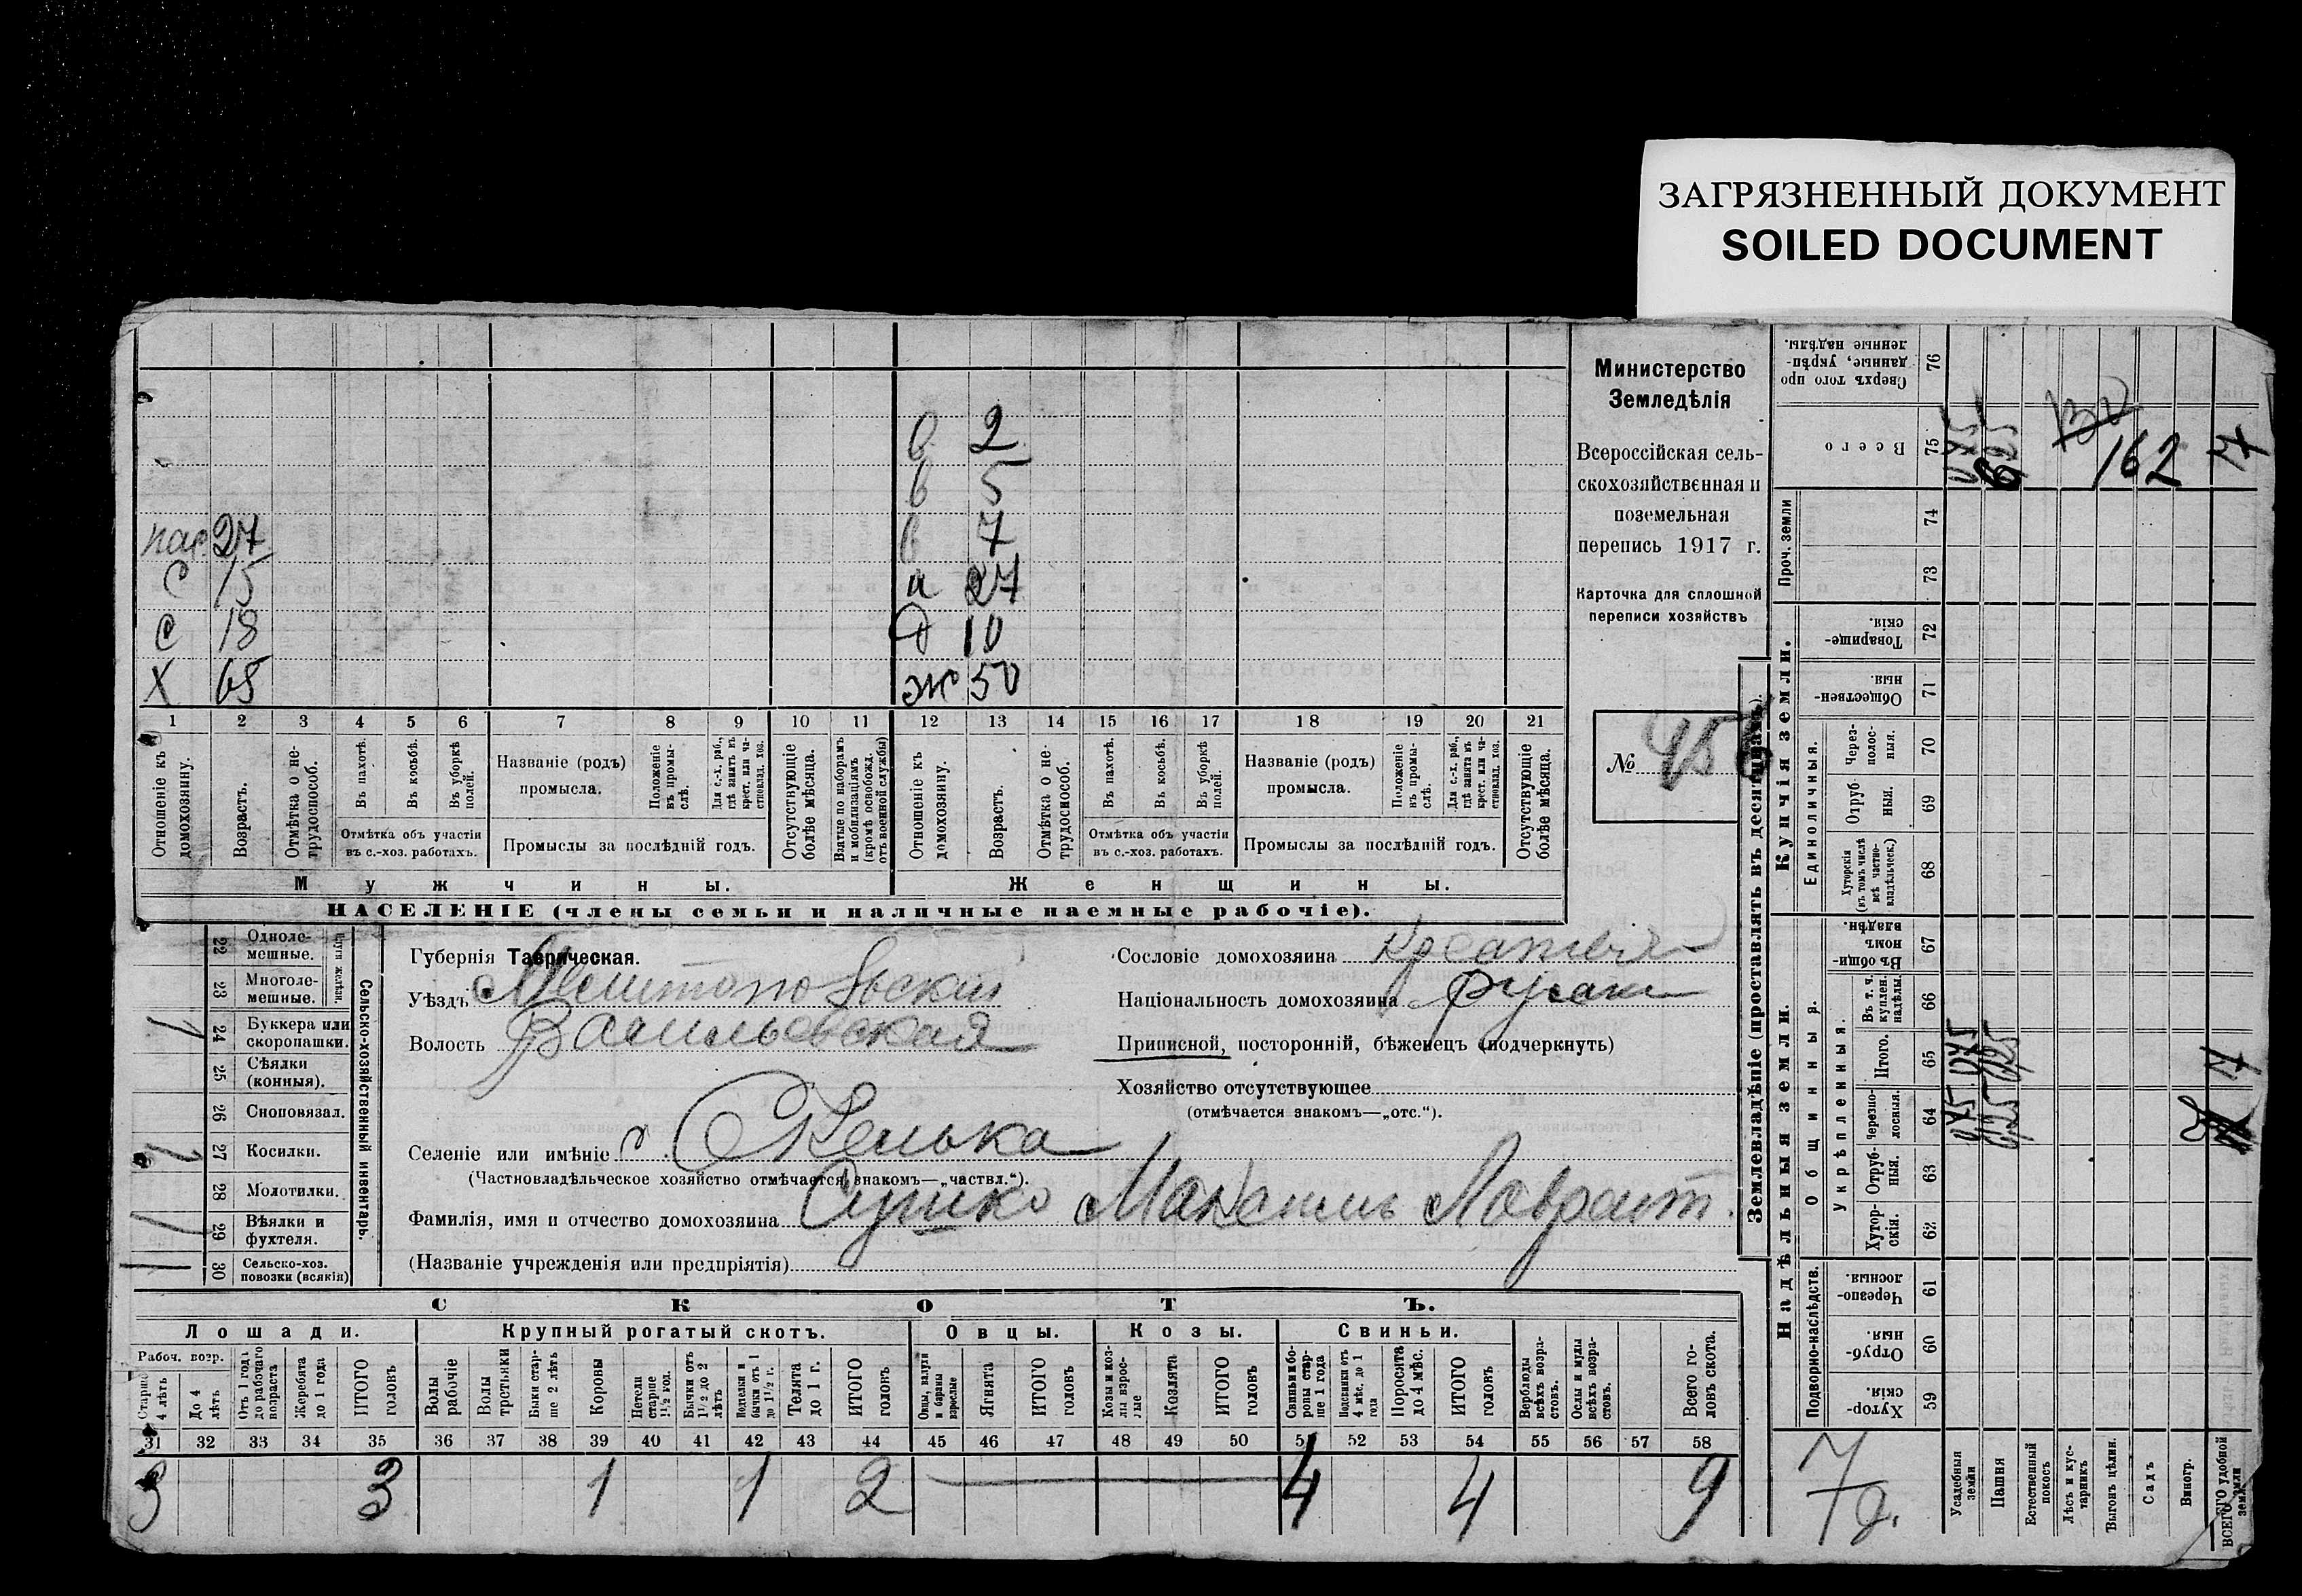 ЗАГРЯЗНЕННЫЙ ДОКУМЕНТ
SOILED DOCUMENT
в 2
в 5
27 в 7
с 15 и 27
с 18 д 10
х 65 ж 50
1 2 3 4 5 6 7 8 9 10 11 12 13 14 15 16 17 18 19 20 21
Отношеніе къ домохозяину.
Возрастъ.
Отмѣтка о не-трудоспособ.
Въ пахотѣ.
Въ косьбѣ.
Въ уборкѣ полей.
Отмѣтка объ участіи въ с.-хоз. работахъ.
Названіе (родъ) промысла.
Положеніе въ промы-слѣ.
Для с.-х. раб., гдѣ занятъ въ крест. или ча-стновлад. хоз.
Промыслы за послѣдній годъ.
Отсутствующіе болѣе мѣсяца.
Взятые по наборамъ и мобилизаціямъ (кромѣ освобожд. отъ военной службы)
Отношеніе къ домохозяину.
Возрастъ.
Отмѣтка о не-трудоспособ.
Въ пахотѣ.
Въ косьбѣ.
Въ уборкѣ полей.
Отмѣтка объ участіи въ с.-хоз. работахъ.
Названіе (родъ) промысла.
Положеніе въ промы-слѣ.
Для с.-х. раб., гдѣ занята въ крест. или ча-стновлад. хоз.
Промыслы за послѣдній годъ.
Отсутствующіе болѣе мѣсяца.
Мужчины. Женщины.
НАСЕЛЕНІЕ (члены семьи и наличные наемные рабочіе).
Министерство
Земледѣлія
Всероссійская сель-
скохозяйственная и
поземельная
перепись 1917 г.
Карточка для сплошной
переписи хозяйствъ
№ 456
22 Одноле-мешные.
23 Многоле-мешные.
24 Буккера или скоропашки. 1
25 Сѣялки (конныя).
26 Сноповязал.
27 Косилки. 1
28 Молотилки.
29 Вѣялки и фухтеля. 1
30 Сельско-хоз. повозки (всякія) 1
Сельско-хозяйственный инвентарь.
Губернія Таврическая.
Уѣздъ Мелитопольскій
Волость Васильевская
Сословіе домохозяина
Національность домохозяина
Приписной, посторонній, бѣженецъ (подчеркнуть)
Хозяйство отсутствующее
(отмѣчается знакомъ—„отс.“).
Селеніе или имѣніе с. Скелька
(Частновладѣльческое хозяйство отмѣчается знакомъ—„частвл.“).
Фамилія, имя и отчество домохозяина Сушко Максимъ Лаврент.
(Названіе учрежденія или предпріятія)
СКОТЪ.
Лошади. Крупный рогатый скотъ. Овцы. Козы. Свиньи.
Рабоч. возр.
Старше 4 лѣтъ
До 4 лѣтъ
Отъ 1 года до рабочаго возраста
Жеребята до 1 года
ИТОГО головъ
Волы рабочіе
Волы третьяки
Быки стар-ше 2 лѣтъ
Коровы
Нетели старше 1½ год.
Бычки отъ 1½ до 2 лѣтъ
Подтелки и бычки отъ 1 до 1½ г.
Телята до 1 г.
ИТОГО головъ
Овцы, валухи и бараны взрослые
Ягнята
ИТОГО головъ
Козы и коз-лы взрос-лые
Козлята
ИТОГО головъ
Свиньи и бо-ровы стар-ше 1 года
Подсвинки отъ 4 мѣс. до 1 года
Поросята до 4 мѣс.
ИТОГО головъ
Верблюды всѣхъ возра-стовъ.
Ослы и мулы всѣхъ возра-стовъ.
Всего го-ловъ скота.
31 32 33 34 35 36 37 38 39 40 41 42 43 44 45 46 47 48 49 50 51 52 53 54 55 56 57 58
3 3 1 1 2 4 4 9
Землевладѣніе (проставлять въ десятинахъ).
Сверхъ того про-данные, укрѣп-ленные надѣлы. 76
Всего 75 162
Проч. земли
74
73
Купчія земли.
Товарище-скія. 72
Обществен-ныя. 71
Единоличныя.
Через-полос-ныя. 70
Отруб-ныя. 69
Хуторскія (въ томъ числѣ всѣ частно-владѣльческ.) 68
Надѣльныя земли.
Общинныя.
Въ общи-номъ владѣн. 67
Укрѣпленныя.
Въ т. ч. куплен. надѣлы. 66
Итого. 65
Черезпо-лосныя. 64
Отруб-ныя. 63
Хутор-скія. 62
Подворно-наслѣдств.
Черезпо-лосныя. 61
Отруб-ныя. 60
Хутор-скія. 59
Усадебныя земли
Пашня
Естественный покосъ
Лѣсъ и кус-тарникъ
Выгонъ цѣлин.
Садъ
Виногр.
ВСЕГО удобной земли